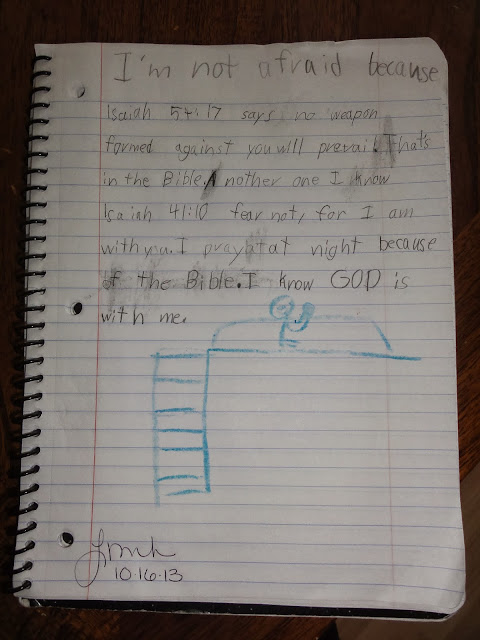 I'm not afraid because
Isaiah 54:17 says no weapon
formed against you will prevail. Thats
in the Bible. A nother one I know
Isaiah 41:10 fear not, for I am
with you. I pray at night because
of the Bible. I know GOD is
with me.
10-16-13